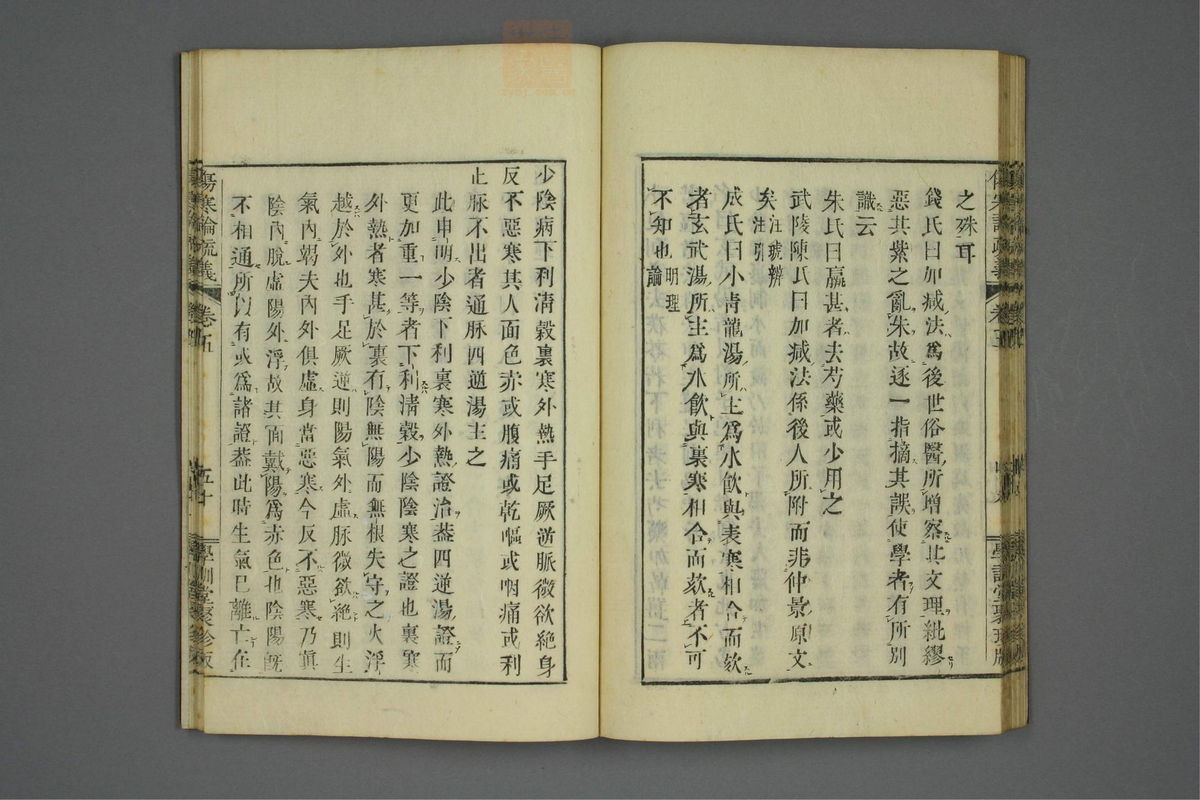 之殊耳
錢氏曰加減法爲後世俗醫所增察其文理紕繆
惡其紫之亂朱故逐一指摘其誤使學者有所別
識云
朱氏曰羸甚者去芍藥或少用之
武陵陳氏曰加減法係後人所附而非仲景原文
矣注琥辨注引
成氏曰小靑龍湯所主爲水飮與表寒相合而欬
者玄武湯所主爲水飮與裏寒相合而欬者不可
不知也明理論
少陰病下利淸穀裏寒外熱手足厥逆脈微欲絶身
反不惡寒其人面色赤或腹痛或乾嘔或咽痛或利
止脉不出者通脉四逆湯主之
此申明少陰下利裏寒外熱證治葢四逆湯證而
更加重一等者下利淸穀少陰陰寒之證也裏寒
外熱者寒甚於裏有陰無陽而無根失守之火浮
越於外也手足厥逆則陽氣外虛脉微欲絶則生
氣內竭夫內外俱虛身當惡寒今反不惡寒乃眞
陰內脫虛陽外浮故其面戴陽爲赤色也陰陽旣
不相通所以有或爲諸證葢此時生氣已離亡在
傷寒論疏義 卷五 五十 學訓堂聚珍版